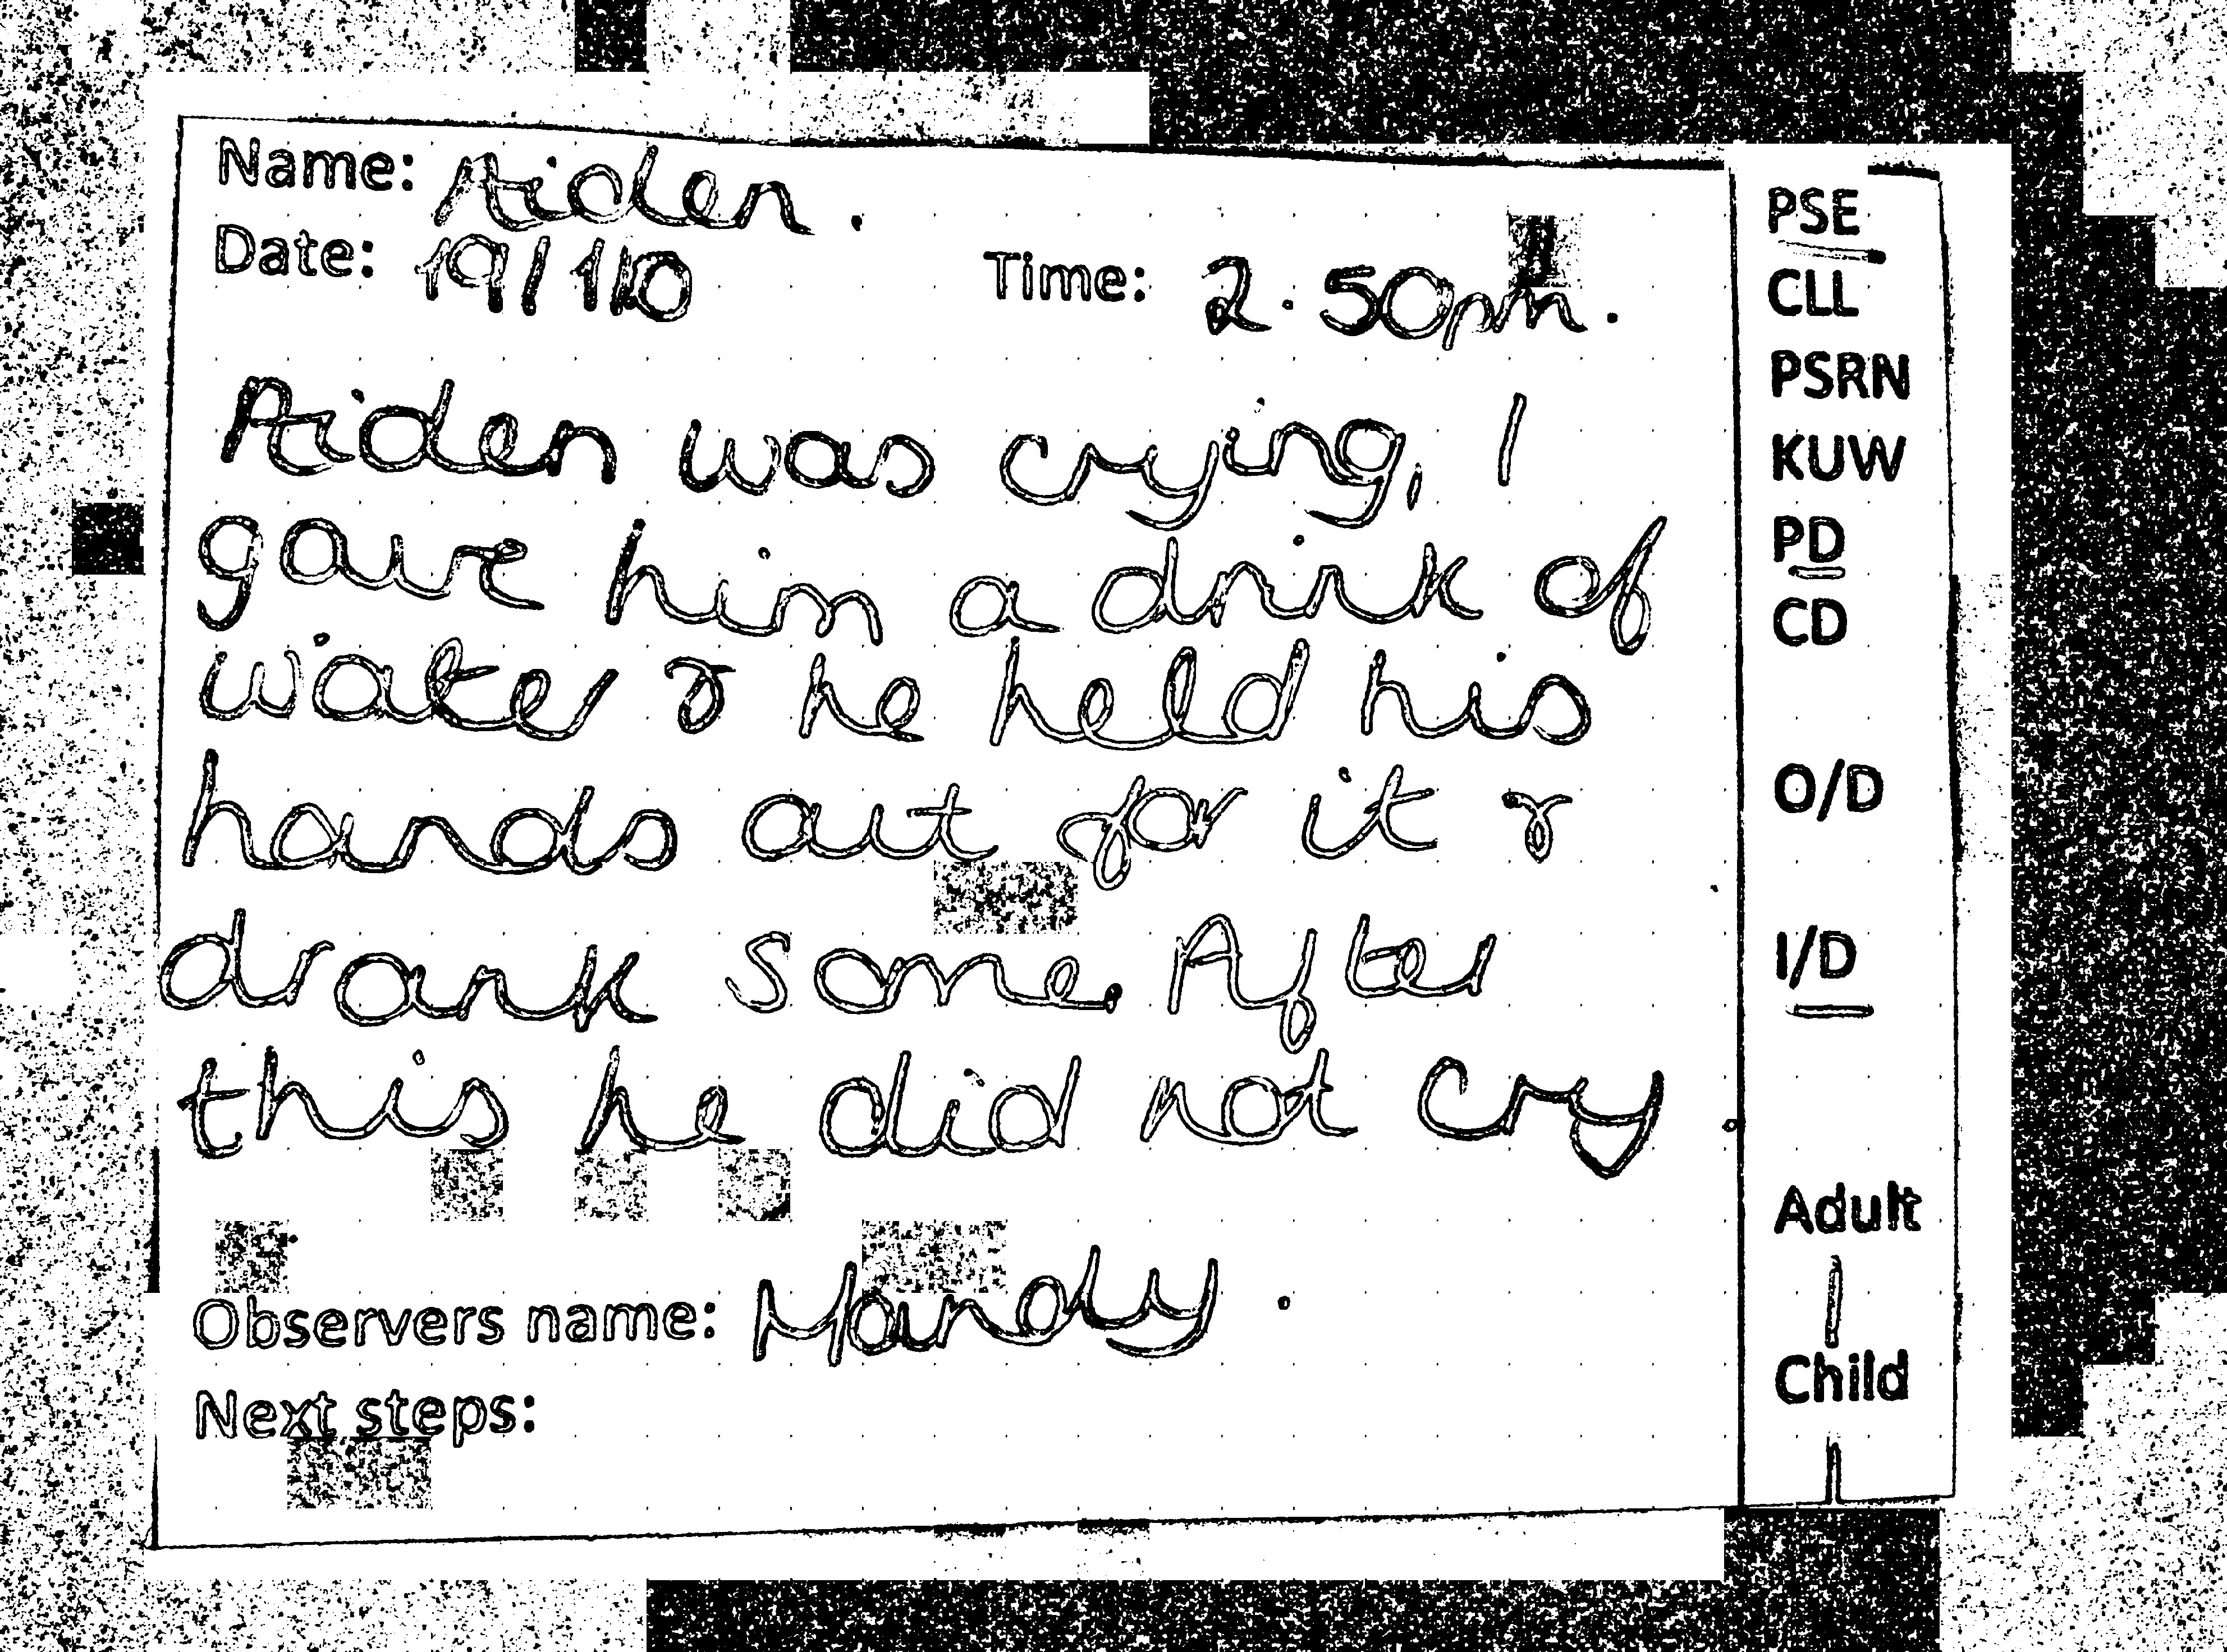 Name: Aiden.
Date: 19/1/10 Time: 2.50pm.
Aiden was crying, I
gave him a drink of
water & he held his
hands out for it &
drank some. After
this he did not cry.
Observers name: Mandy.
Next steps:
PSE
CLL
PSRN
KUW
PD
CD
O/D
I/D
Adult
Child